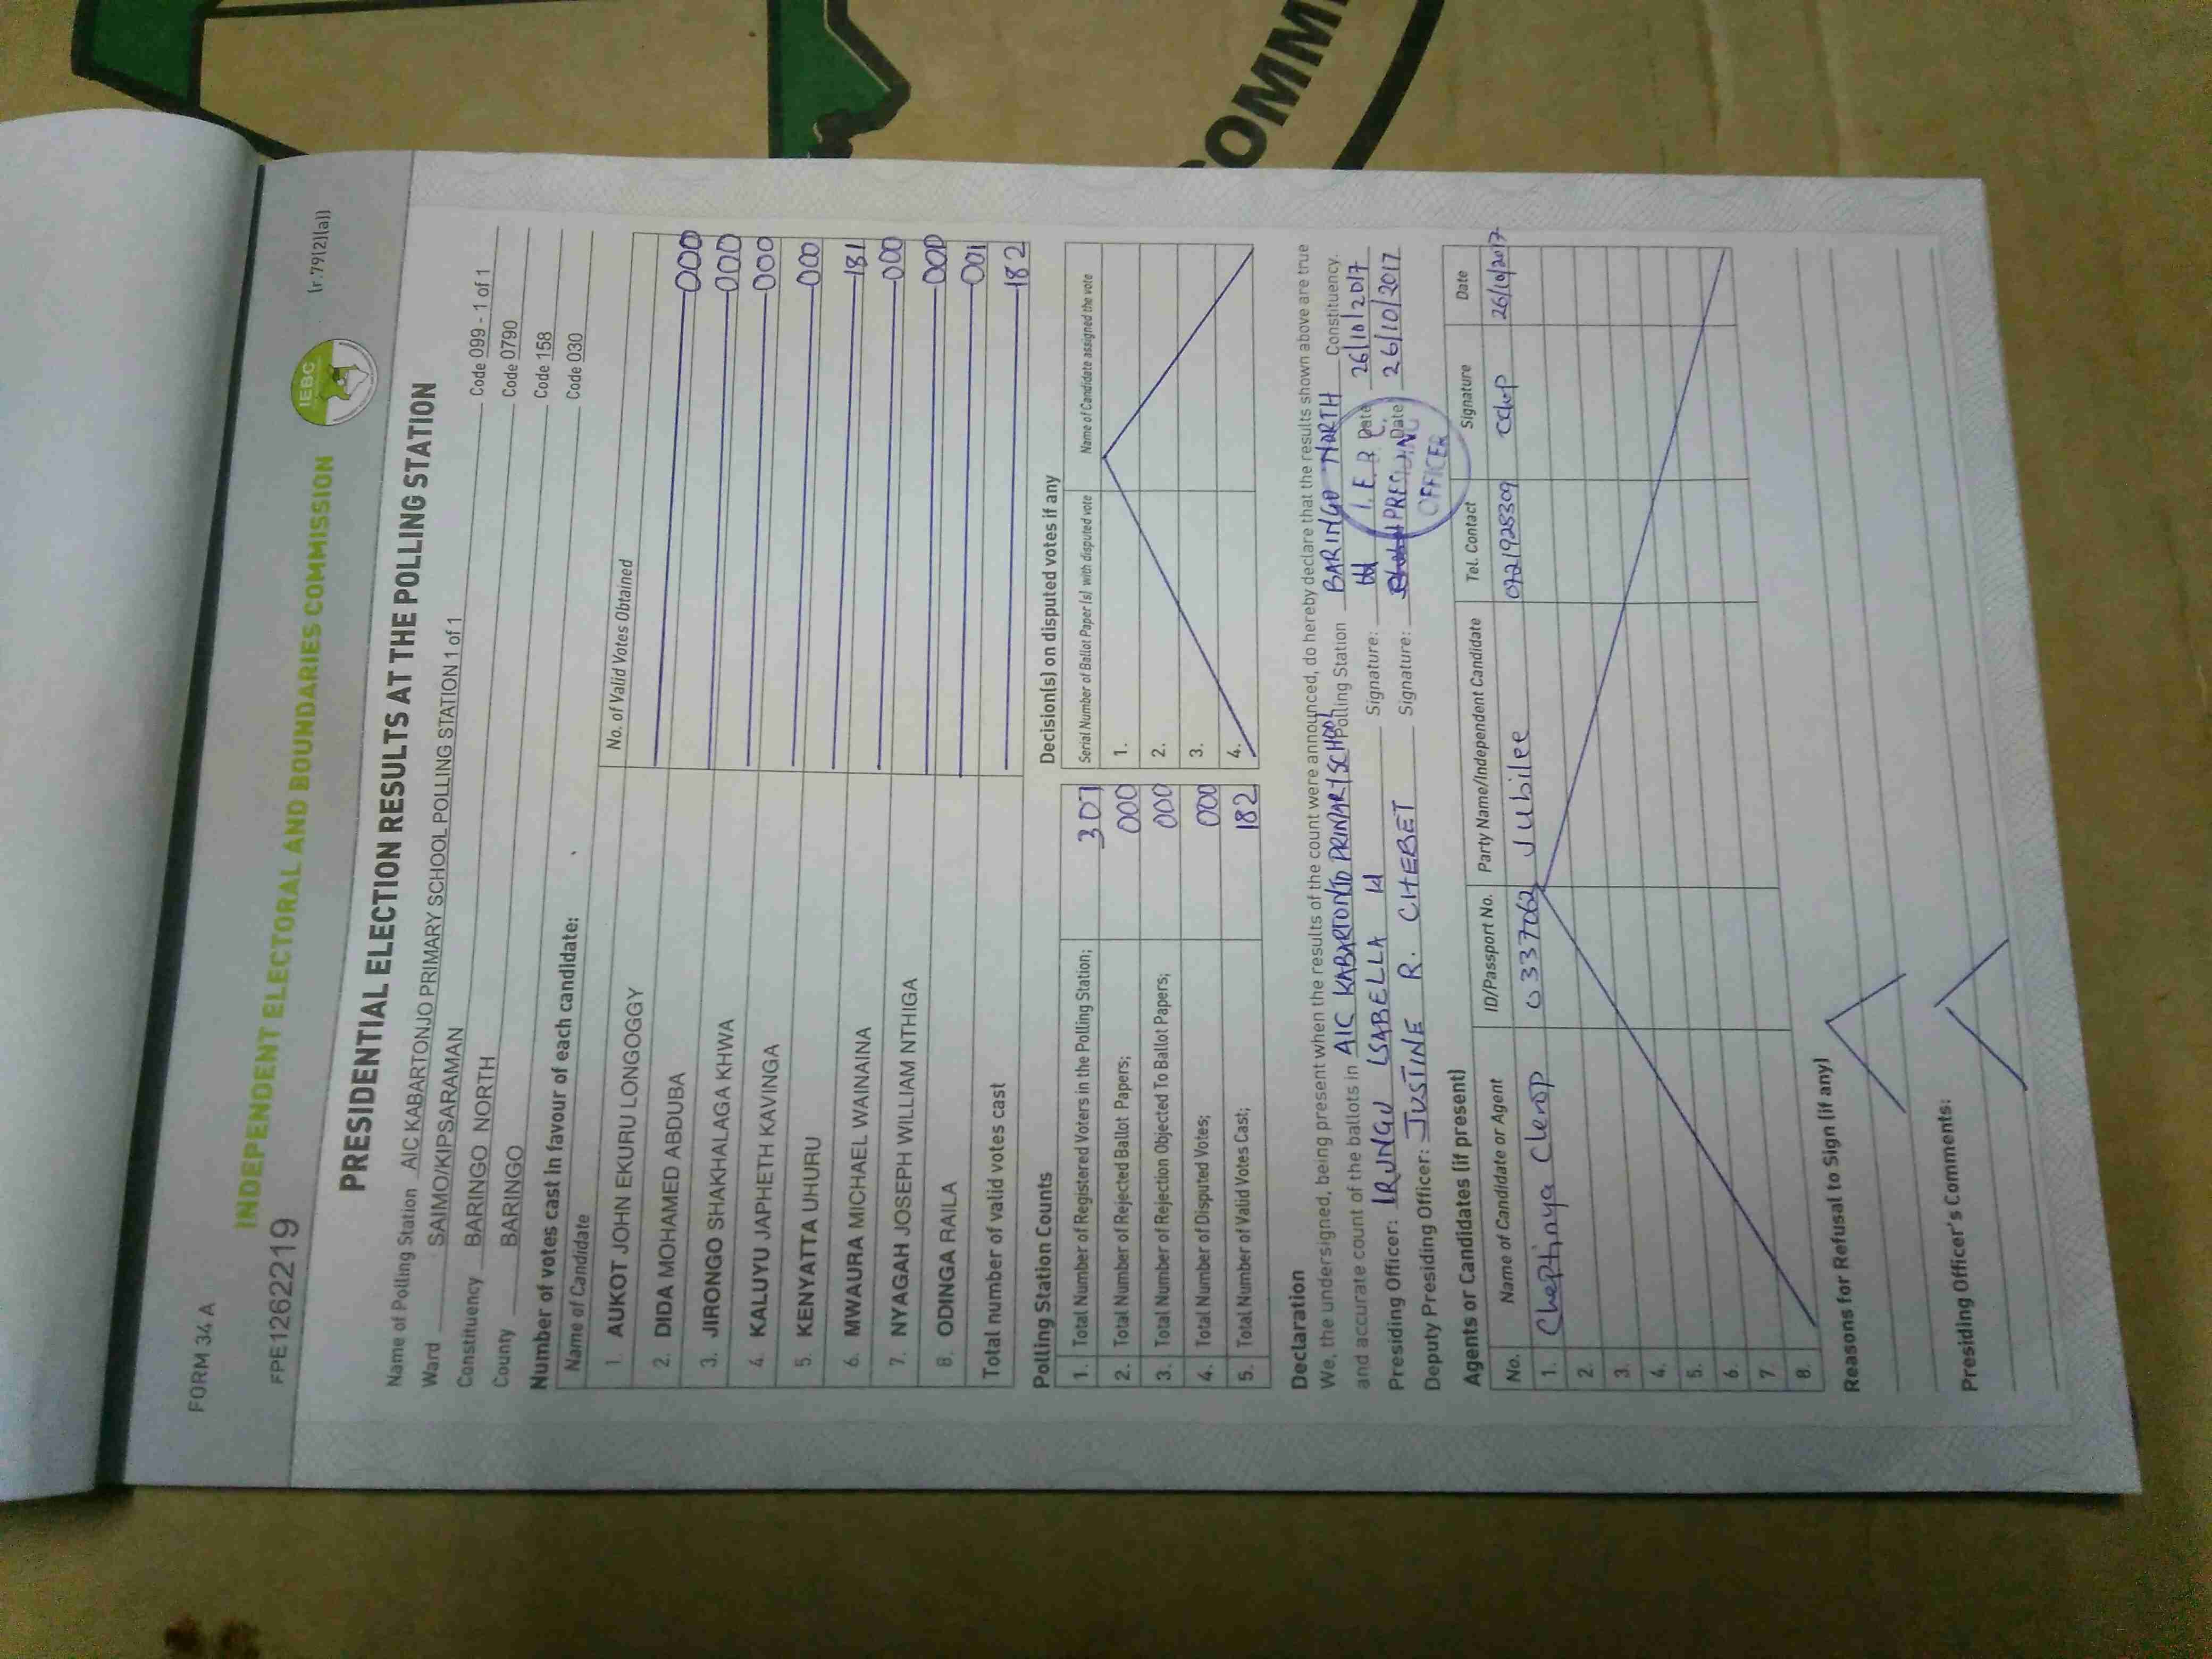 FORM 34 A
(r.79(2)(a))
FPE1262219
INDEPENDENT ELECTORAL AND BOUNDARIES COMMISSION
IEBC
PRESIDENTIAL ELECTION RESULTS AT THE POLLING STATION
Name of Polling Station AIC KABARTONJO PRIMARY SCHOOL POLLING STATION 1 of 1 Code 099 - 1 of 1
Ward SAIMO/KIPSARAMAN Code 0790
Constituency BARINGO NORTH Code 158
County BARINGO Code 030
Number of votes cast in favour of each candidate:
Name of Candidate No. of Valid Votes Obtained
1. AUKOT JOHN EKURU LONGOGGY 000
2. DIDA MOHAMED ABDUBA 000
3. JIRONGO SHAKHALAGA KHWA 000
4. KALUYU JAPHETH KAVINGA 000
5. KENYATTA UHURU 181
6. MWAURA MICHAEL WAINAINA 000
7. NYAGAH JOSEPH WILLIAM NTHIGA 000
8. ODINGA RAILA 001
Total number of valid votes cast 182
Polling Station Counts
1. Total Number of Registered Voters in the Polling Station; 307
2. Total Number of Rejected Ballot Papers; 000
3. Total Number of Rejection Objected To Ballot Papers; 000
4. Total Number of Disputed Votes; 000
5. Total Number of Valid Votes Cast; 182
Decision(s) on disputed votes if any
Serial Number of Ballot Paper (s) with disputed vote Name of Candidate assigned the vote
1.
2.
3.
4.
Declaration
We, the undersigned, being present when the results of the count were announced, do hereby declare that the results shown above are true
and accurate count of the ballots in AIC KABARTONJO PRIMARY SCHOOL Polling Station BARINGO NORTH Constituency.
Presiding Officer: IRUNGU ISABELLA Signature: Date 26/10/2017
Deputy Presiding Officer: JUSTINE R. CHEBET Signature: Date 26/10/2017
I.E.B.C.
PRESIDING
OFFICER
Agents or Candidates (if present)
No. Name of Candidate or Agent ID/Passport No. Party Name/Independent Candidate Tel. Contact Signature Date
1. 03337062 Jubilee 0721928309 26/10/2017
2.
3.
4.
5.
6.
7.
8.
Reasons for Refusal to Sign (if any)
Presiding Officer's Comments: